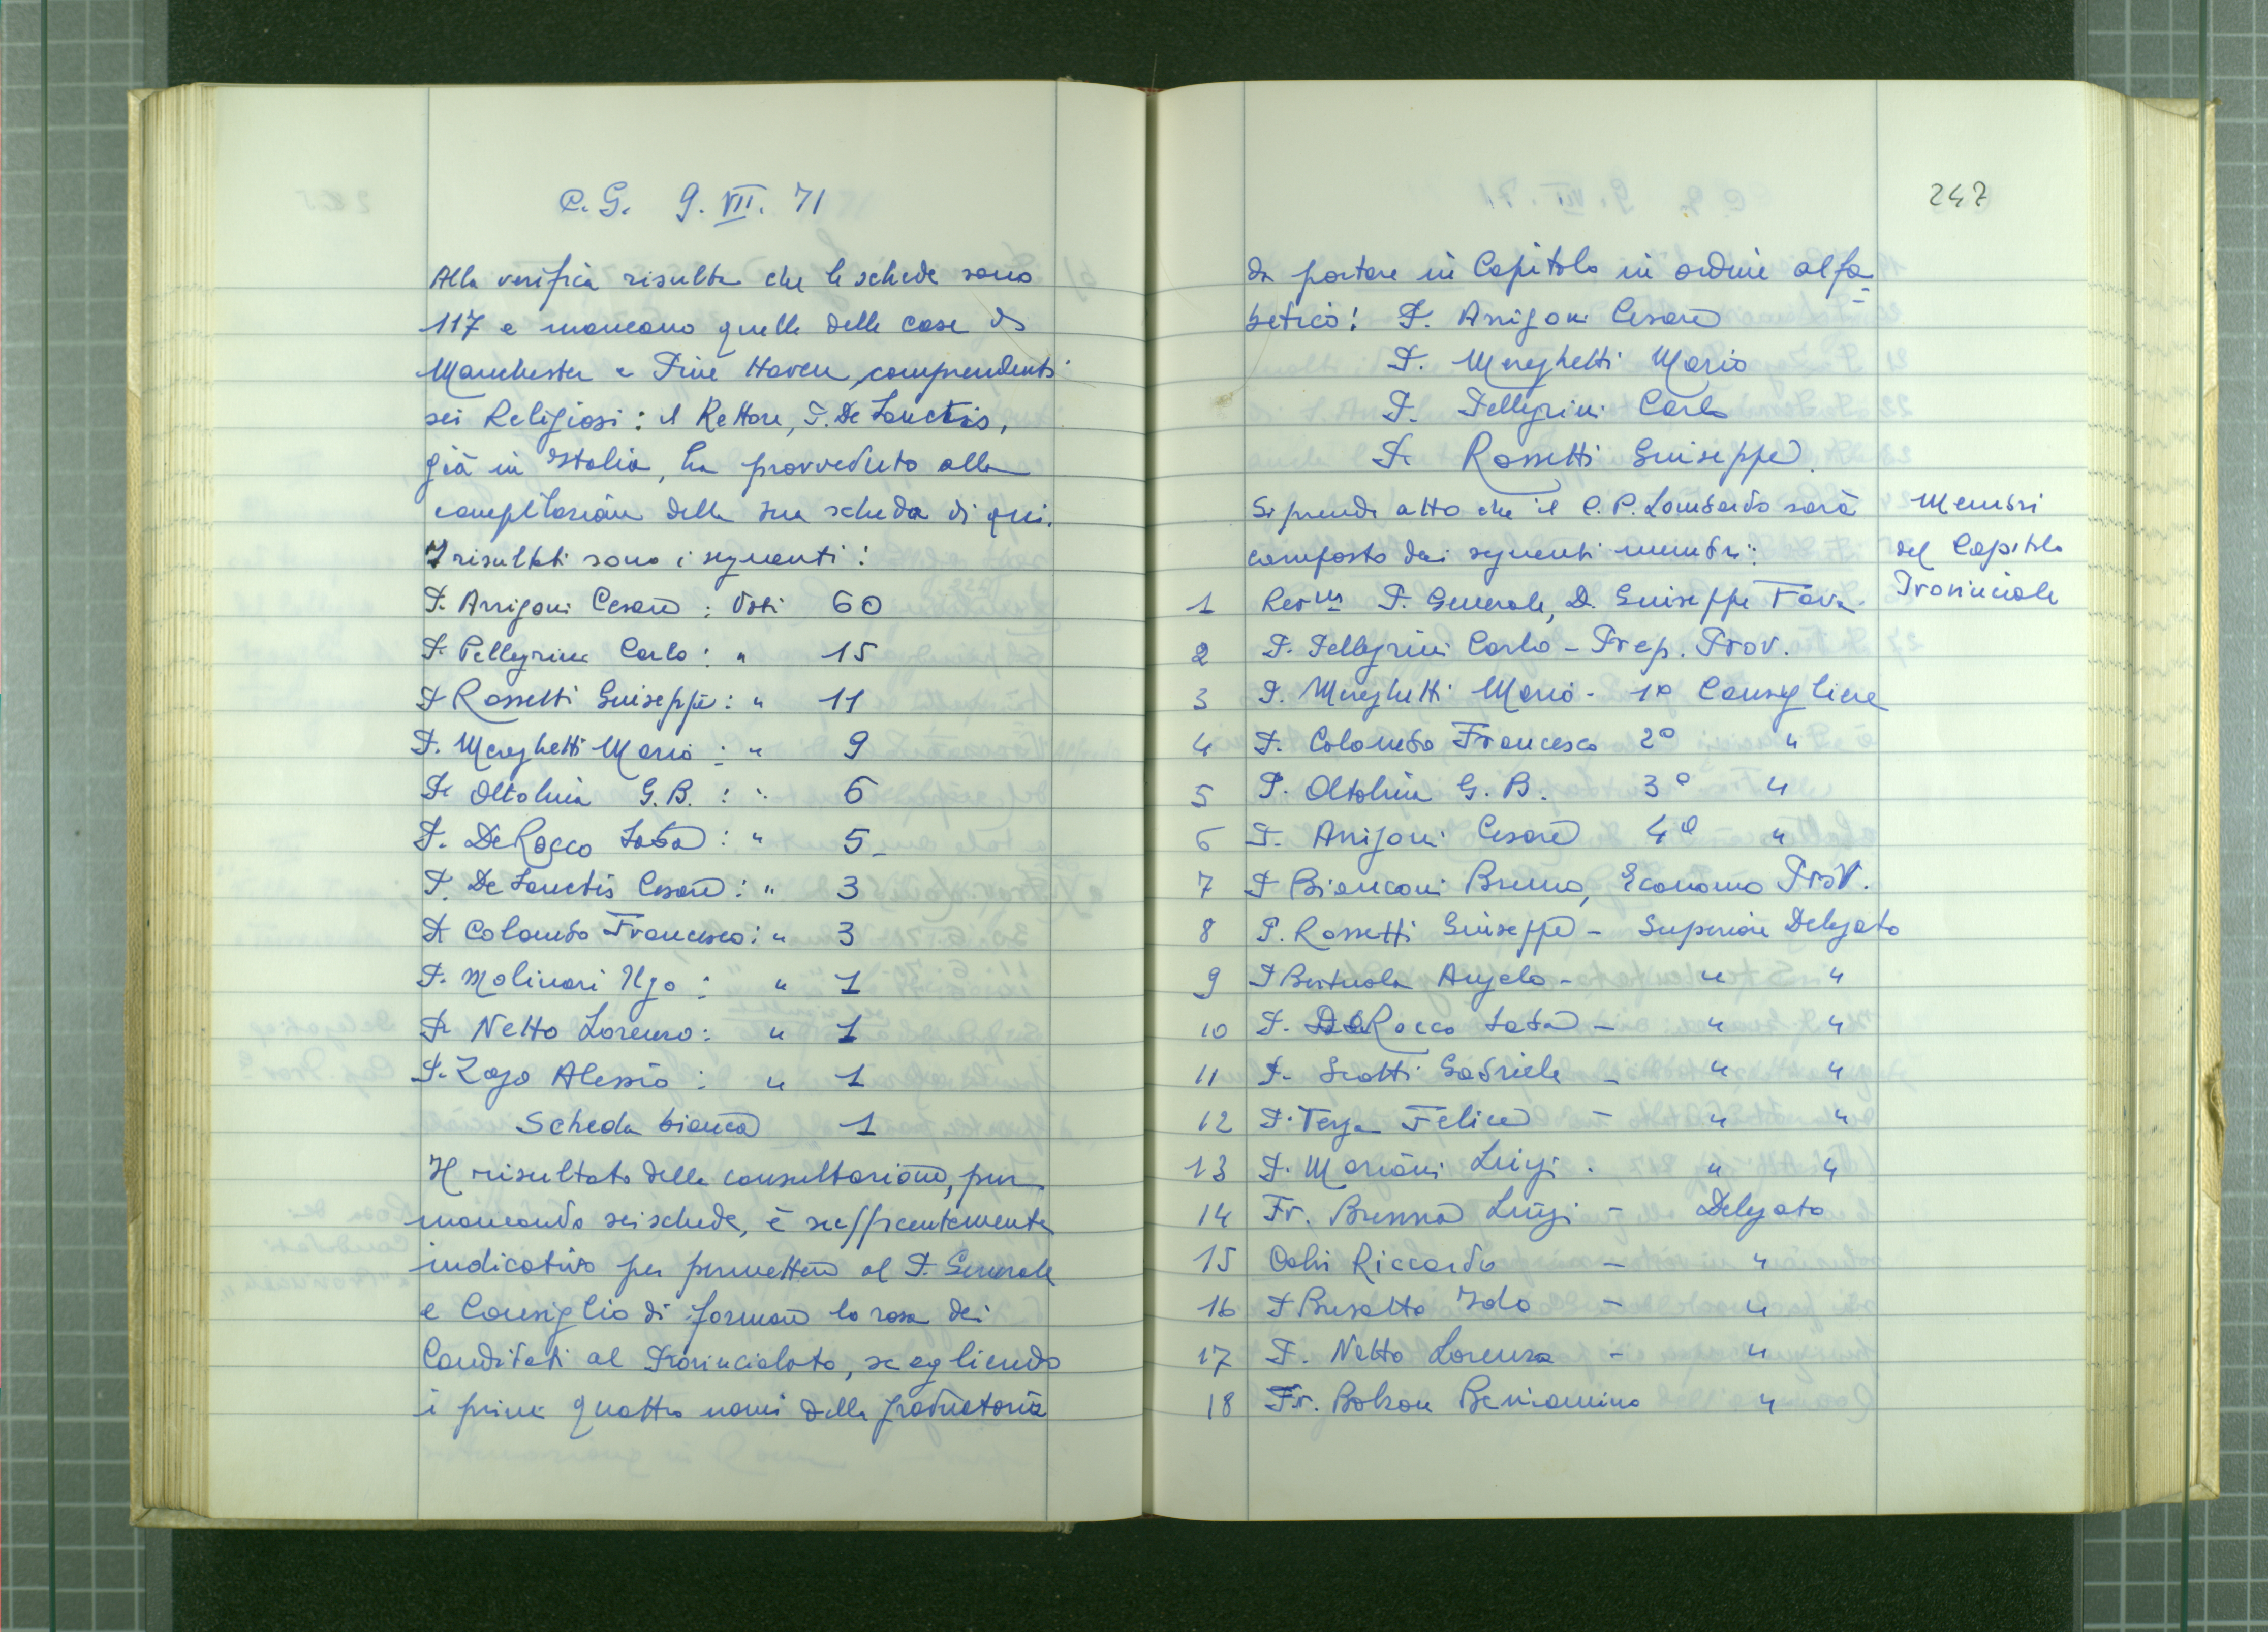 C. G. 9. VII. 71
Alla verifica risulta che le schede sono
117 e mancano quelle delle case di
Manchester e Pine Haven, comprendenti
sei Religiosi: il Rettore, P. De Sanctis,
già in Italia, ha provveduto alla
compilazione della sua scheda di qui.
I risultati sono i seguenti:
P. Arrigoni Cesare: Voti 60
P. Pellegrini Carlo: " 15
P. Rossetti Giuseppe: " 11
P. Mereghetti Mario: " 9
P. Oltolina G. B.: " 6
P. De Rocco Saba: " 5-
P. De Sanctis Cesare: " 3
P. Colombo Francesco: " 3
P. Molinari Ugo: " 1
P. Netto Lorenzo: " 1
P. Zago Alessio: " 1
Scheda bianca 1
Il risultato della consultazione, pur
mancando sei schede, è sufficientemente
indicativo per permettere al P. Generale
e Consiglio di formare la rosa dei
Candidati al Provincialato, scegliendo
i primi quattro nomi della graduatoria
247
da portare in Capitolo in ordine alfa-
betico: P. Arrigoni Cesare
P. Mereghetti Mario
P. Pellegrini Carlo
P. Rossetti Giuseppe.
Si prende atto che il C. P. Lombardo sarà
composto dai seguenti membri:
Membri
del Capitolo
Provinciale
1 Rev.mo P. Generale, D. Giuseppe Fava
2 P. Pellegrini Carlo - Prep. Prov.
3 P. Mereghetti Mario - 1º Consigliere
4 P. Colombo Francesco 2º "
5 P. Oltolina G. B. 3º "
6 P. Arrigoni Cesare 4º "
7 P. Bianconi Bruno, Economo Prov.
8 P. Rossetti Giuseppe - Superiore Delegato
9 P. Bertuola Angelo - " "
10 P. De Rocco Saba - " "
11 P. Scotti Gabriele - " "
12 P. Verga Felice - " "
13 P. Mariani Luigi - " "
14 Fr. Brenna Luigi - Delegato
15 Riccardo - "
16 P. Busatto Italo - "
17 P. Netto Lorenzo - "
18 Fr. Bolzon Beniamino "